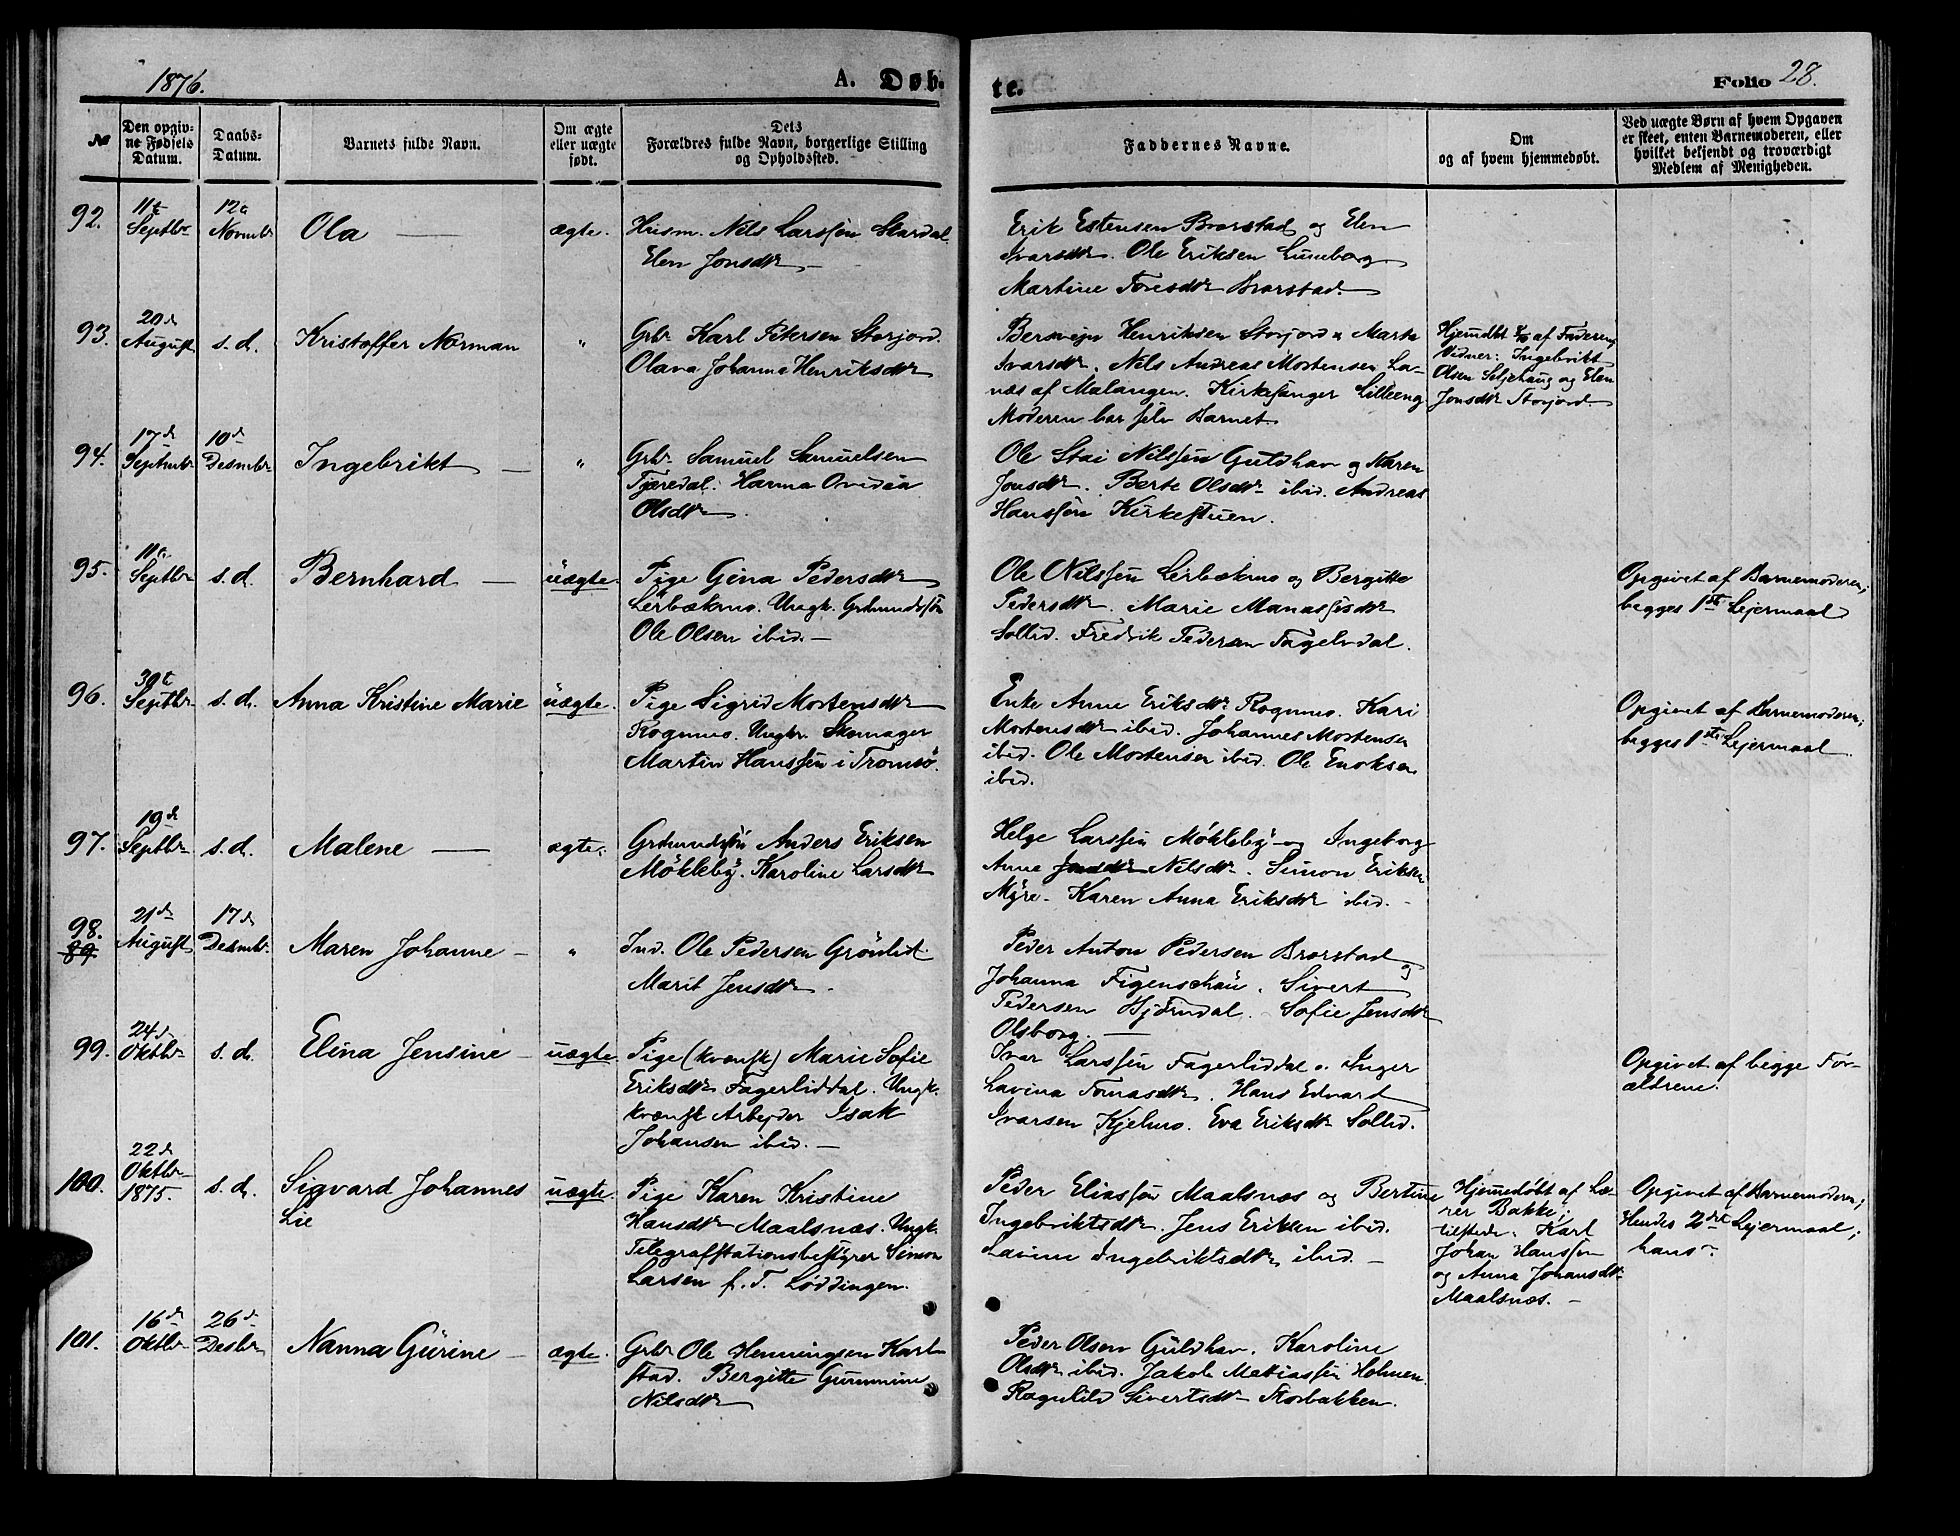 1876.
A. Døb-
te.
Folio 28.
№
Den opgiv-
ne Fødsels
Datum.
Daabs-
Datum.
Barnets fulde Navn.
Om ægte
eller uægte
født.
Dets
Forældres fulde Navn, borgerlige Stilling
og Opholdssted.
Faddernes Navne.
Om
og af hvem hjemmedøbt.
Ved uægte Børn af hvem Opgaven
er skeet, enten Barnemoderen, eller
hvilket bekjendt og troværdigt
Medlem af Menigheden.
92.
11te
Septbr
12te
Novmbr
Ola
ægte.
Husm. Nils Larssøn Skardal
Elen Jonsdtr
Erik Estensen Brarstad og Elen
Ivarsdtr. Ole Eriksen Luneborg
Martine Toresdtr Brarstad.
93.
August
s. d.
Kristoffer Norman
"
Grbr Karl Petersen Storjord.
Olava Johanna Henriksdtr
Bersvejn Henriksen Storjord & Marta
Ivarsdtr. Nils Andreas Mortensen La-
næs af Malangen. Kirkesanger Lilleeng
Moderen bar selv Barnet.
Hjemdbt af Faderen
Vidner: Ingebrikt
Olsen Seljehaug og Elen
Jonsdtr Storjord.
94.
17de
Septmbr
10de
Desmbr
Ingebrikt
"
Grbr Samuel Samuelsen
Tjæredal. Hanna Ovidia
Olsdtr
Ole Stai Nilssøn Guldhav og Karen
Jonsdtr. Berte Olsdtr ibid. Andreas
Hanssøn Kirkestuen.
95.
11te
Septbr
s. d.
Bernhard
uægte.
Pige Gina Pedersdtr
Lerbækmo. Ungk. Grdmandssøn
Ole Olsen ibid.
Ole Nilssøn Lerbækmo og Bergitte
Pedersdtr. Marie Manassisdtr
Sollid. Fredrik Pedersen Fagelvdal.
Opgivet af Barnemoderen;
begges 1ste Lejermaal
96.
30te
Septbr
s. d.
Anna Kristine Marie
uægte.
Pige Sigrid Mortensdtr
Rognmo. Ungkr. Skomager
Martin Hanssøn i Tromsø.
Enke Anne Eriksdtr Rognmo. Kari
Mortensdtr ibid. Johannes Mortensen
ibid. Ole Mortensen ibid. Ole Enoksen
ibid.
Opgivet af Barnemoderen;
begges 1ste Lejermaal.
97.
19de
Septbr
s. d.
Malene
ægte.
Grdmandssøn Anders Eriksen
Møkleby. Karoline Larsdtr
Helge Larssøn Møkleby og Ingeborg
Anna Jonsdtr Nilsdtr. Simon Eriksen
Myre. Karen Anna Eriksdtr ibid.
98.
89
21de
August
17de
Desmbr.
Maren Johanne
"
Ind. Ole Pedersen Grønlid.
Marit Jensdtr.
Peder Anton Pedersen Brarstad
og
Johanna Figenschau. Sivert
Pedersen Hjørndal. Sofie Jensdtr
Olsborg.
99.
24de
Oktbr
s. d.
Elina Jensine
uægte
Pige (kvensk) Marie Sofie
Eriksdtr Fagerliddal. Ungk.
kvensk Arbejder Isak
Johansen ibid.
Ivar Larssøn Fagerliddal o. Inger
Lavina Tomasdtr. Hans Edvart
Ivarsen Kjelmo. Eva Eriksdtr Sollid.
Opgivet af begge For-
ældrene.
100.
22de
Oktbr
1875.
s. d.
Sigvard Johannes
Lie
uægte.
Pige Karen Kristine
Hansdtr Maalsnæs. Ungk.
Telegrafstationsbestyrer Simon
Larsen f. T. Løddingen.
Peder Eliassøn Maalsnæs og Bertine
Ingebriktsdtr. Jens Eriksen ibid.
Lavine Ingebriktsdtr ibid.
Hjemmedøbt af Læ-
rer Bakke;
tilstede: Karl
Johan Hanssøn
og Anna Johansdtr
Maalsnæs.
Opgivet af Barnemoderen;
Hendes 2det Lejermaal;
hans ?
101.
16de
Oktbr
26de
Desbr
Nanna Gurine
ægte.
Grbr Ole Henningsen Karl-
stad. Bergitte
Nilsdtr
Peder Olsen Guldhav. Karoline
Olsdtr ibid. Jakob Matiassøn Holmen.
Ragnhild Sivertsdtr Florbakken.